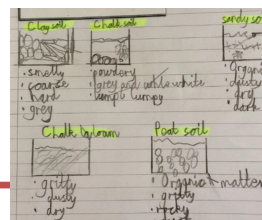 Clay soil
• smelly
• coarse
• hard
• grey
Chalk soil
• powdery
• grey and white
• lumpy
sandy so
• Organi
• dusty
• dry
• dark
Chalk by loam
• gritty
• dusty
• dry
Peat soil
• Organic matter
• gritty
• rocky